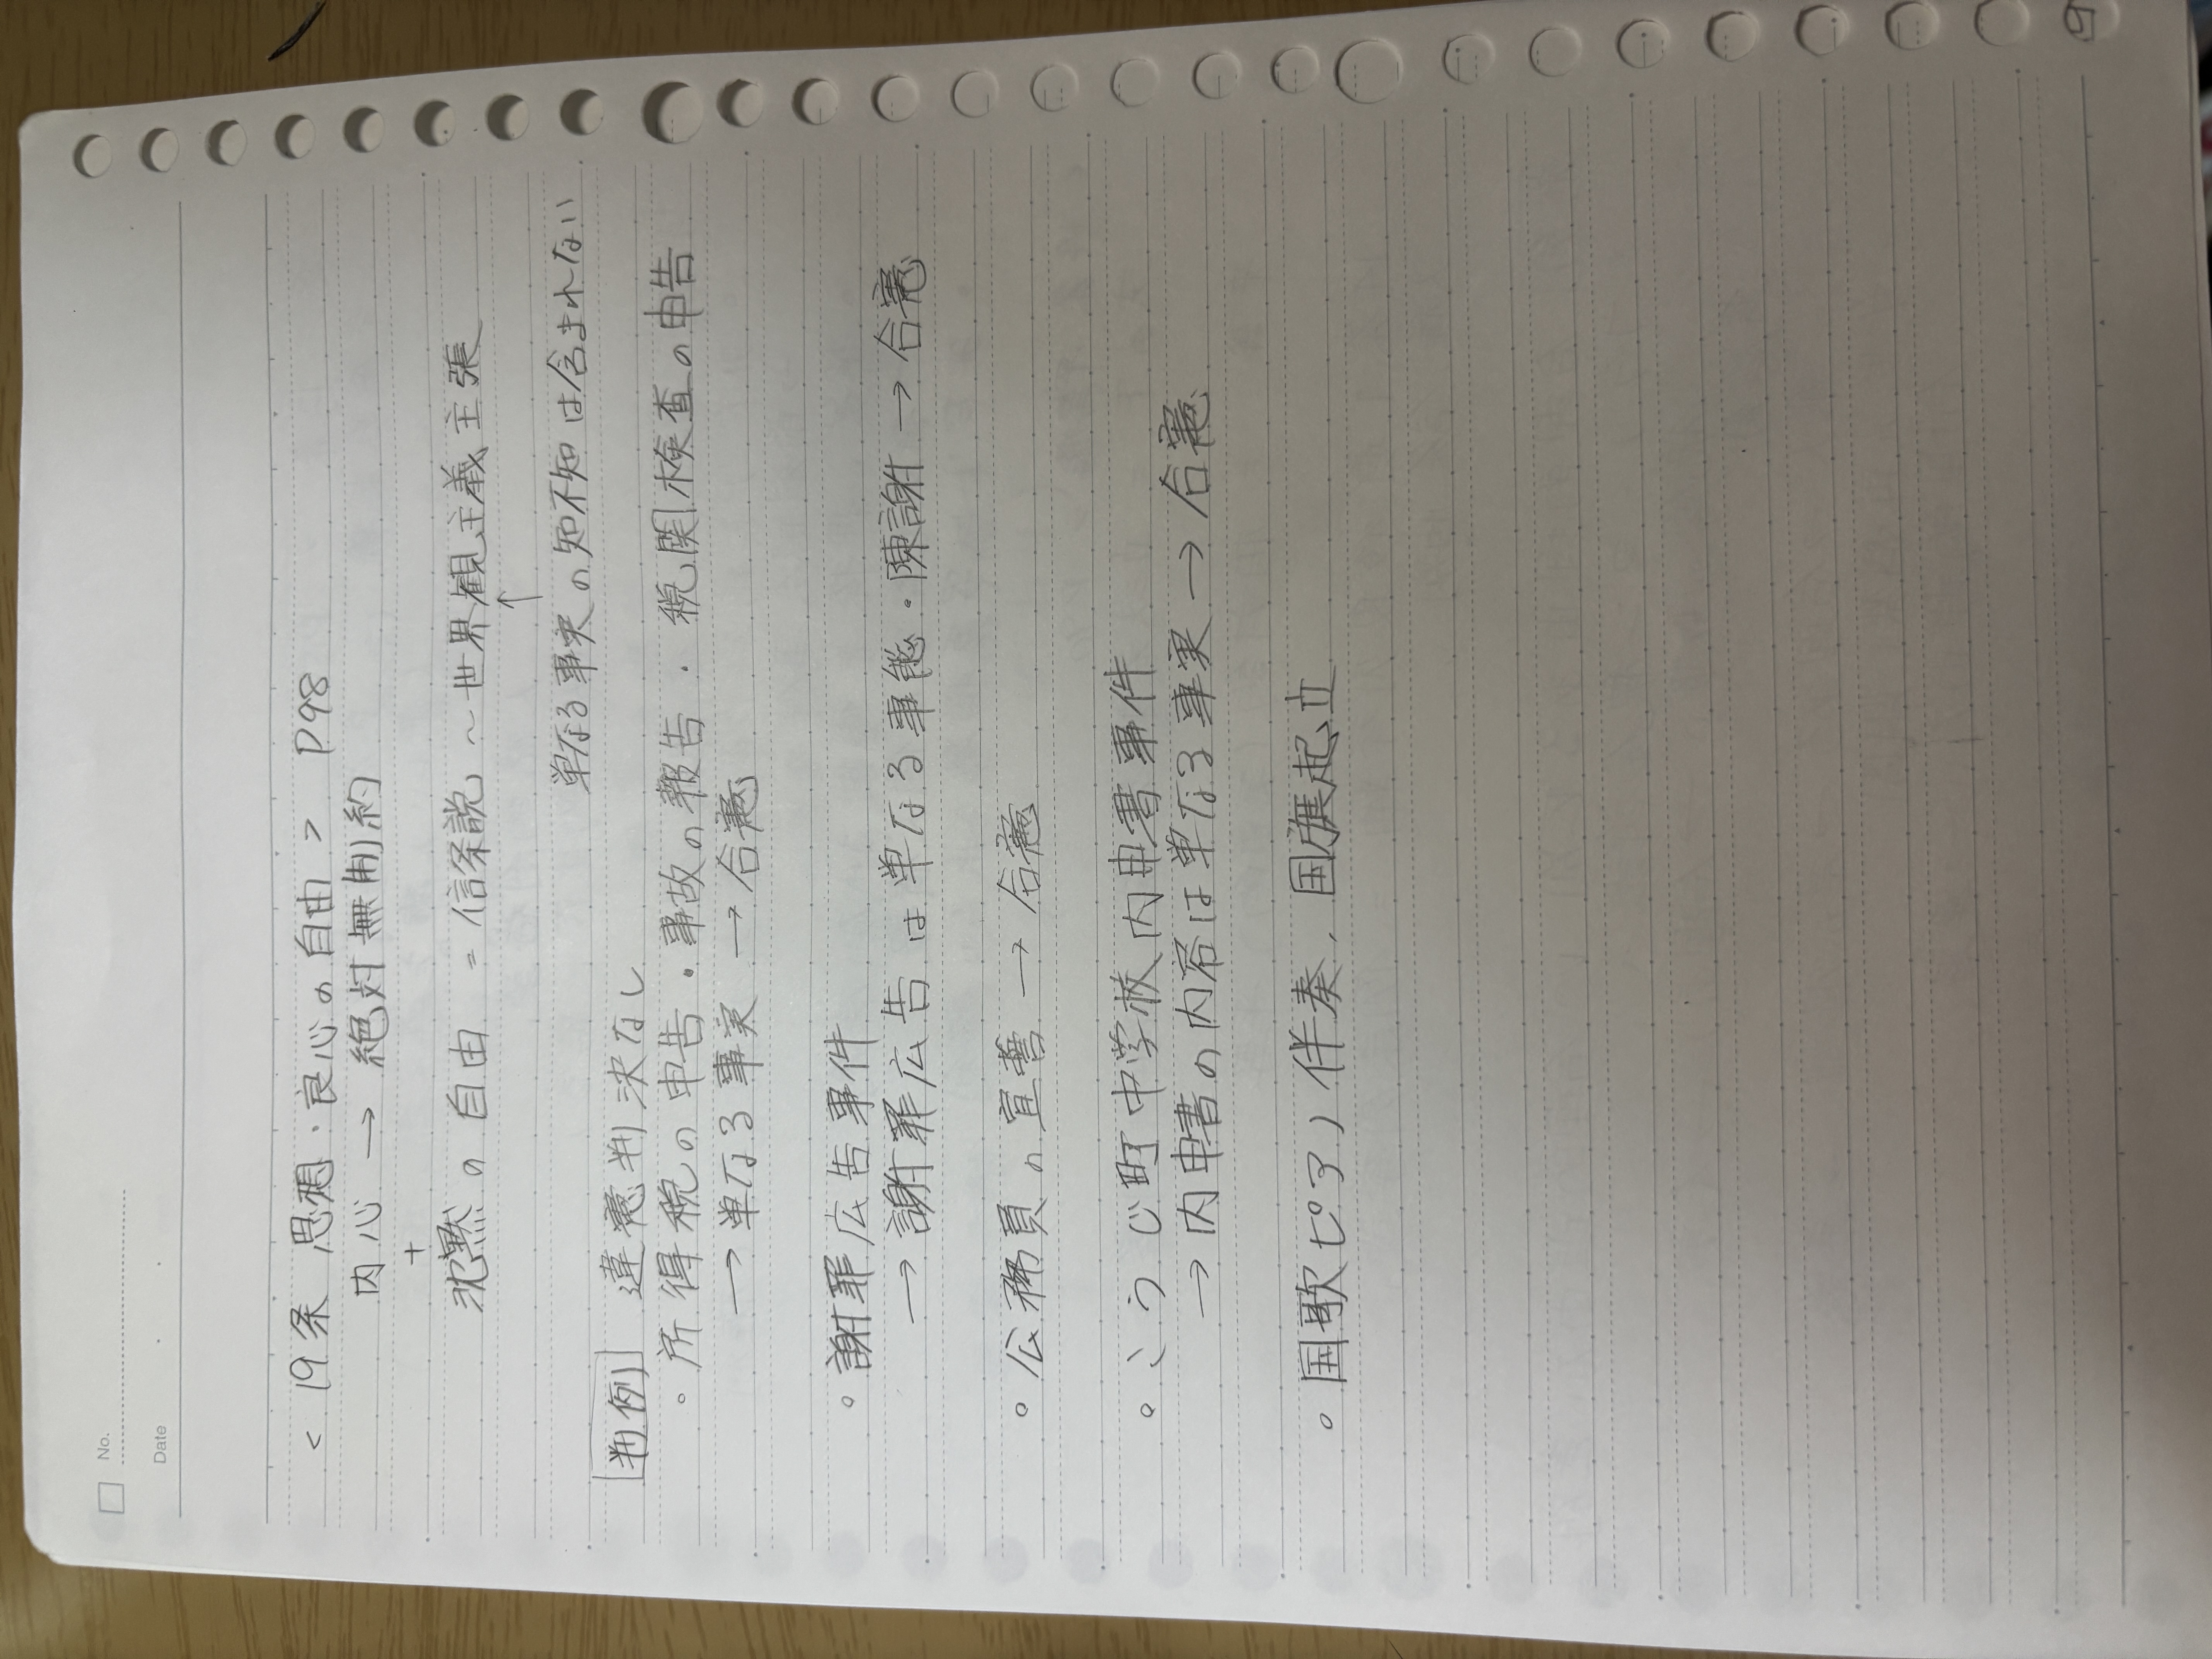 No.
Date
< 19条 思想・良心の自由 > P98
内心 → 絶対無制約
+
沈黙の自由 = 信条説 〜世界観主義主張
↑
単なる事実の知不知は含まれない
判例 違憲判決なし
。所得税の申告・事故の報告・税関検査の申告
→単なる事実 → 合憲
。謝罪広告事件
→ 謝罪広告は単なる事態・陳謝 → 合憲
。公務員の宣誓 → 合憲
。こうじ町中学校内申書事件
→ 内申書の内容は単なる事実 → 合憲
。国歌ピアノ伴奏, 国旗起立